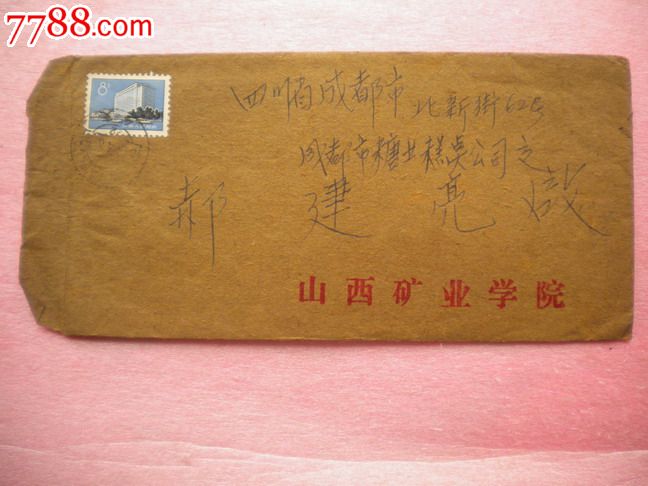 7788.com
8分
四川省成都市北新街62号
成都市糖业糕点公司交
郝建亮 啟
山西矿业学院